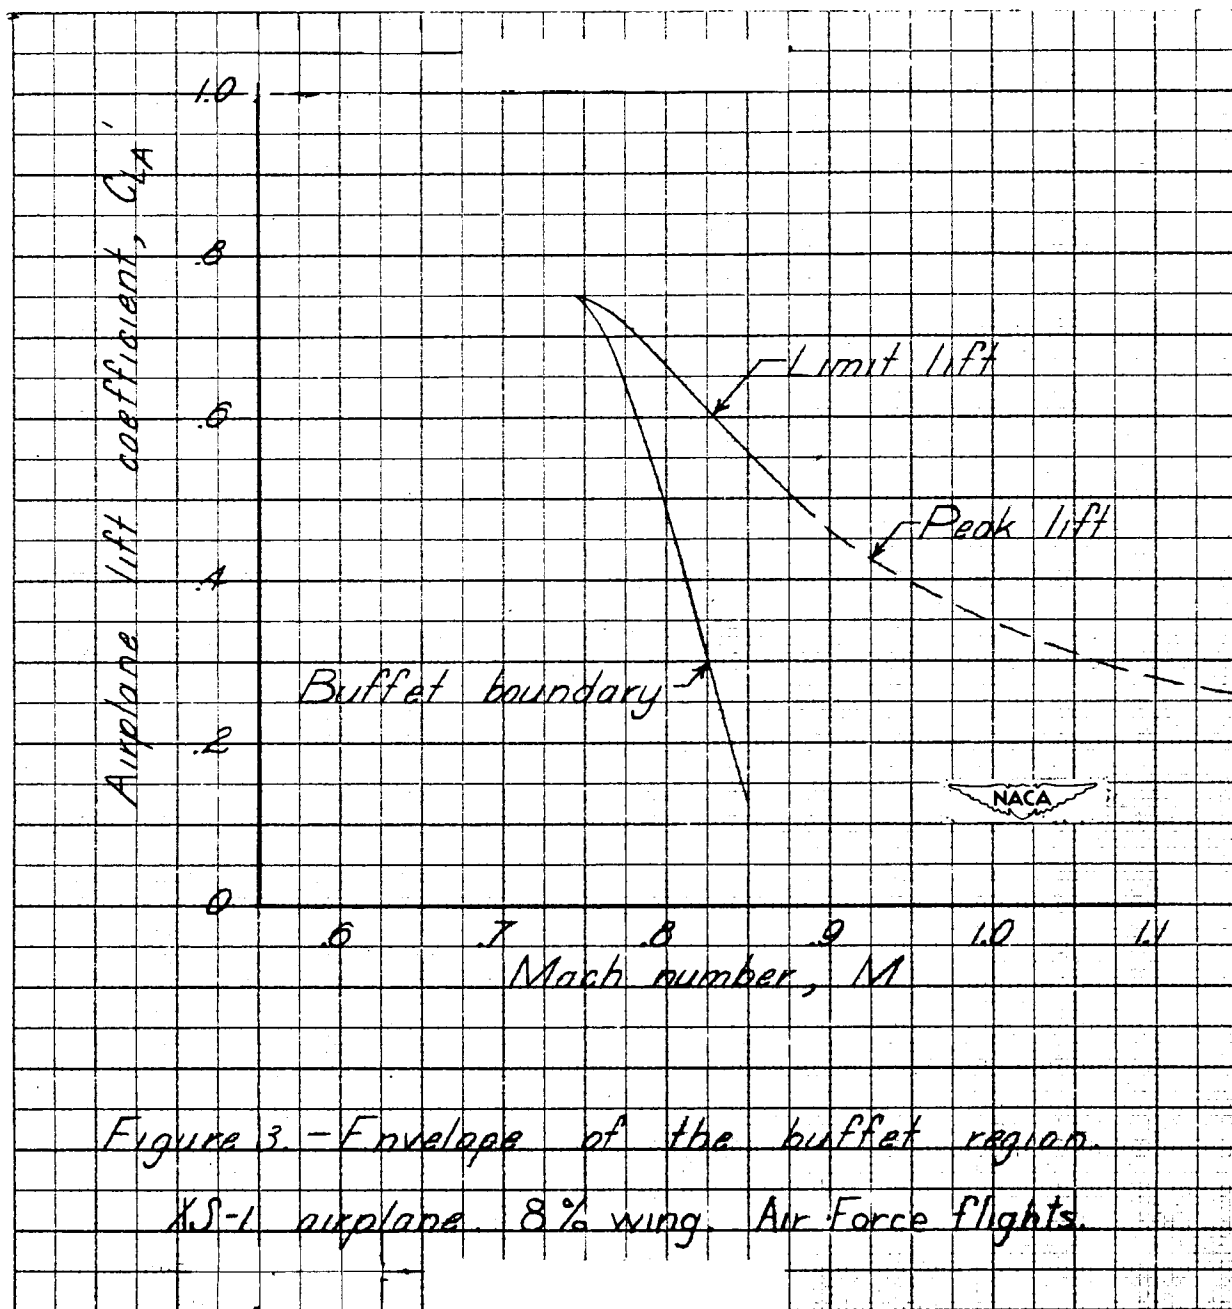 1.0
.8
.6
.4
.2
0
Airplane lift coefficient, CLA'
Limit lift
Peak lift
Buffet boundary
NACA
.6 .7 .8 .9 1.0 1.1
Mach number, M
Figure 3.-Envelope of the buffet region.
XS-1 airplane. 8% wing. Air Force flights.